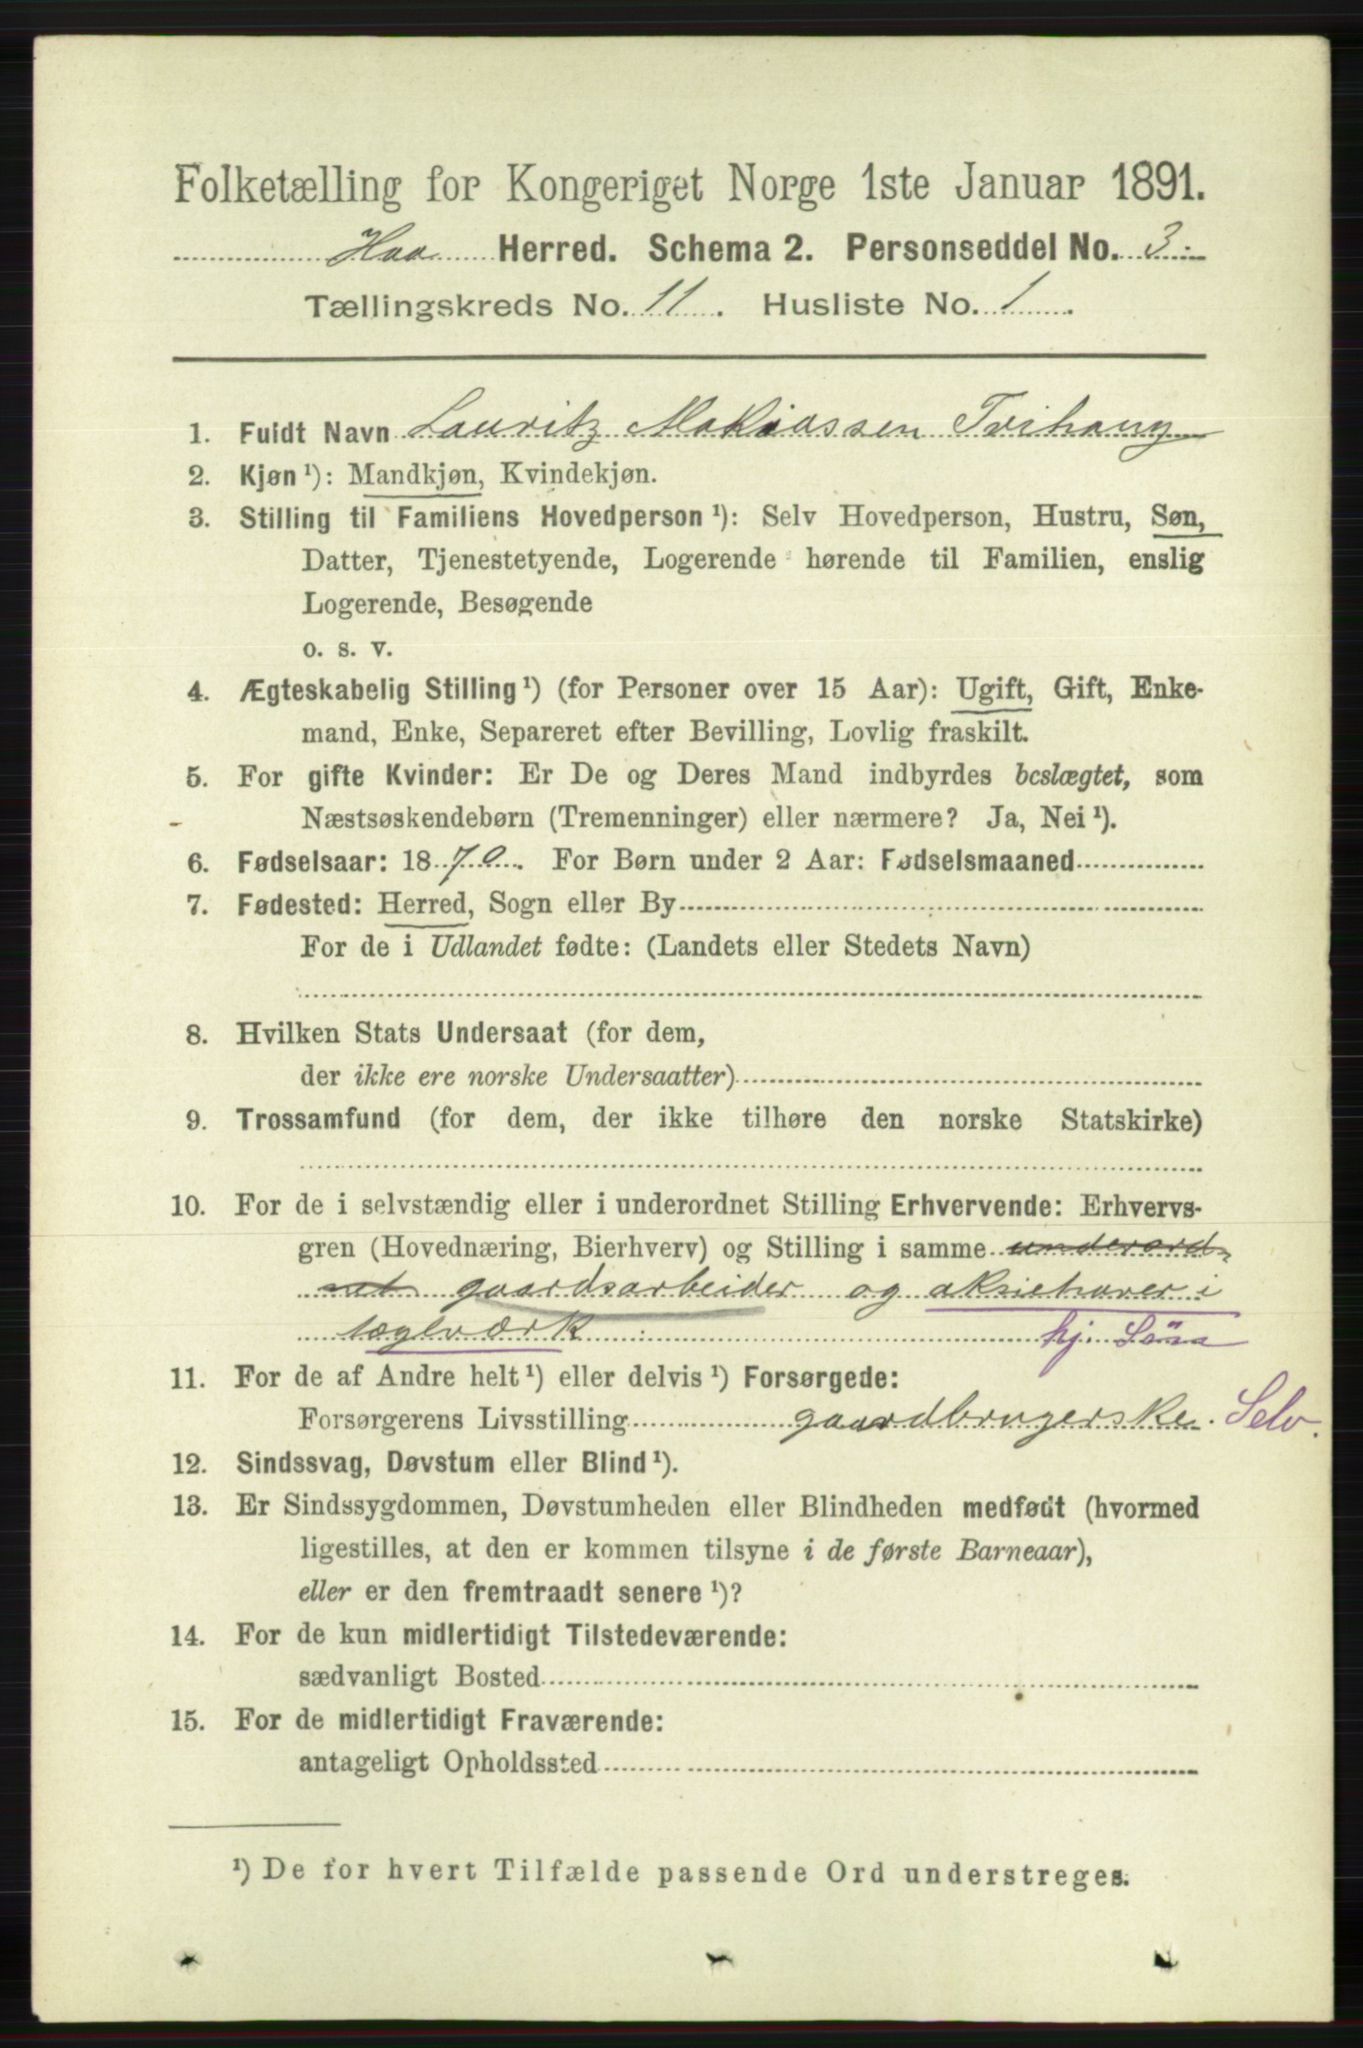 Folketælling for Kongeriget Norge 1ste Januar 1891.
Haa Herred. Schema 2. Personseddel No. 3
Tællingskreds No. 11. Husliste No. 1.
1. Fuldt Navn Lauritz Makiassen Tvihaug
2. Kjøn ¹): Mandkjøn, Kvindekjøn.
3. Stilling til Familiens Hovedperson ¹): Selv Hovedperson, Hustru, Søn,
Datter, Tjenestetyende, Logerende hørende til Familien, enslig
Logerende, Besøgende
o. s. v.
4. Ægteskabelig Stilling ¹) (for Personer over 15 Aar): Ugift, Gift, Enke-
mand, Enke, Separeret efter Bevilling, Lovlig fraskilt.
5. For gifte Kvinder: Er De og Deres Mand indbyrdes beslægtet, som
Næstsøskendebørn (Tremenninger) eller nærmere? Ja, Nei ¹).
6. Fødselsaar: 1870. For Børn under 2 Aar: Fødselsmaaned
7. Fødested: Herred, Sogn eller By
For de i Udlandet fødte: (Landets eller Stedets Navn)
8. Hvilken Stats Undersaat (for dem,
der ikke ere norske Undersaatter)
9. Trossamfund (for dem, der ikke tilhøre den norske Statskirke)
10. For de i selvstændig eller i underordnet Stilling Erhvervende: Erhvervs-
gren (Hovednæring, Bierhverv) og Stilling i samme underord-
net gaardsarbeider og aktiehaver i
teglværk hj. Søn
11. For de af Andre helt ¹) eller delvis ¹) Forsørgede:
Forsørgerens Livsstilling gaardbrugerske. Selv.
12. Sindssvag, Døvstum eller Blind ¹).
13. Er Sindssygdommen, Døvstumheden eller Blindheden medfødt (hvormed
ligestilles, at den er kommen tilsyne i de første Barneaar),
eller er den fremtraadt senere ¹)?
14. For de kun midlertidigt Tilstedeværende:
sædvanligt Bosted
15. For de midlertidigt Fraværende:
antageligt Opholdssted
¹) De for hvert Tilfælde passende Ord understreges.